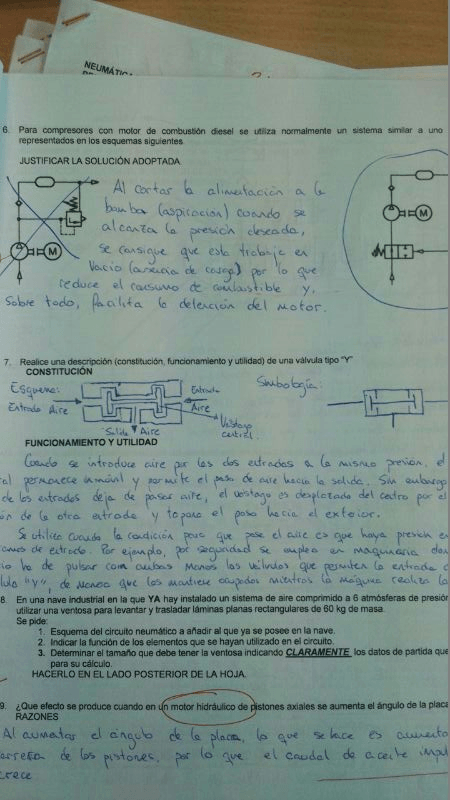 NEUMÁTIC
6. Para compresores con motor de combustión diesel se utiliza normalmente un sistema similar a uno
representados en los esquemas siguientes.
JUSTIFICAR LA SOLUCIÓN ADOPTADA
Al cortar la alimentación a la
bomba (aspiración) cuando se
alcanza la presión deseada,
se consigue que esta trabaje en
vacío (ausencia de carga) por lo que
reduce el consumo de combustible y,
sobre todo, facilita la detención del motor.
M
M
7. Realice una descripción (constitución, funcionamiento y utilidad) de una válvula tipo "Y"
CONSTITUCIÓN
Esquema:
Simbología:
Entrada Aire
Entrada
Aire
Salida Aire
Vástago
central.
FUNCIONAMIENTO Y UTILIDAD
Cuando se introduce aire por las dos entradas a la misma presión, el
al permanece inmóvil y permite el paso de aire hacia la salida. Sin embargo
de las entradas deja de pasar aire, el vástago es desplazado del centro por el
ón de la otra entrada y tapona el paso hacia el exterior.
Se utiliza cuando la condición para que pase el aire es que haya presión en
de entrada. Por ejemplo, por seguridad se emplea en maquinaria don
io ha de pulsar con ambas manos las válvulas que permiten la entrada a
lula "Y", de manera que las mantiene ocupadas mientras la máquina realiza la
8. En una nave industrial en la que YA hay instalado un sistema de aire comprimido a 6 atmósferas de presión
utilizar una ventosa para levantar y trasladar láminas planas rectangulares de 60 kg de masa.
Se pide:
1. Esquema del circuito neumático a añadir al que ya se posee en la nave.
2. Indicar la función de los elementos que se hayan utilizado en el circuito.
3. Determinar el tamaño que debe tener la ventosa indicando CLARAMENTE los datos de partida que
para su cálculo.
HACERLO EN EL LADO POSTERIOR DE LA HOJA.
9. ¿Que efecto se produce cuando en un motor hidráulico de pistones axiales se aumenta el ángulo de la placa
RAZONES
Al aumentar el ángulo de la placa, lo que se hace es aumenta
arrera de los pistones, por lo que el caudal de aceite impul
crece